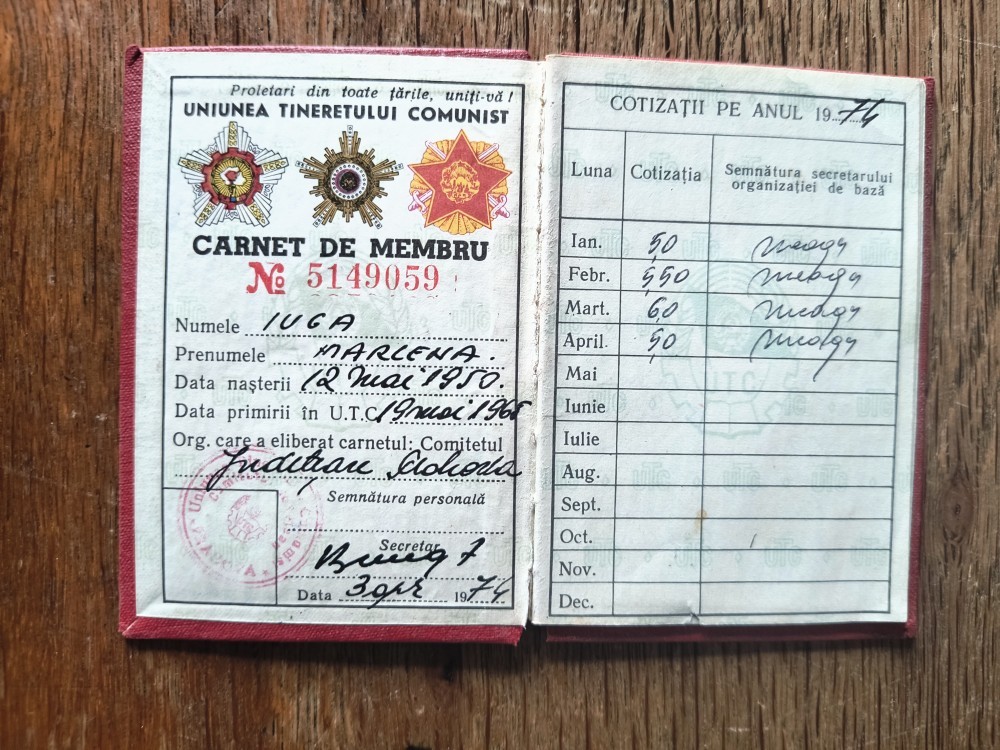 Proletari din toate țările, uniți-vă!
UNIUNEA TINERETULUI COMUNIST
CARNET DE MEMBRU
№ 5149059
Numele IUGA
Prenumele MARLENA.
Data nașterii 12 mai 1950.
Data primirii în U.T.C. 19 mai 196
Org. care a eliberat carnetul: Comitetul
Semnătura personală
Secretar
Data 3 apr 1974
COTIZAȚII PE ANUL 1974
Luna Cotizația Semnătura secretarului
organizației de bază
Ian. 50
Febr.
Mart. 60
April. 50
Mai
Iunie
Iulie
Aug.
Sept.
Oct.
Nov.
Dec.
U.T.C.